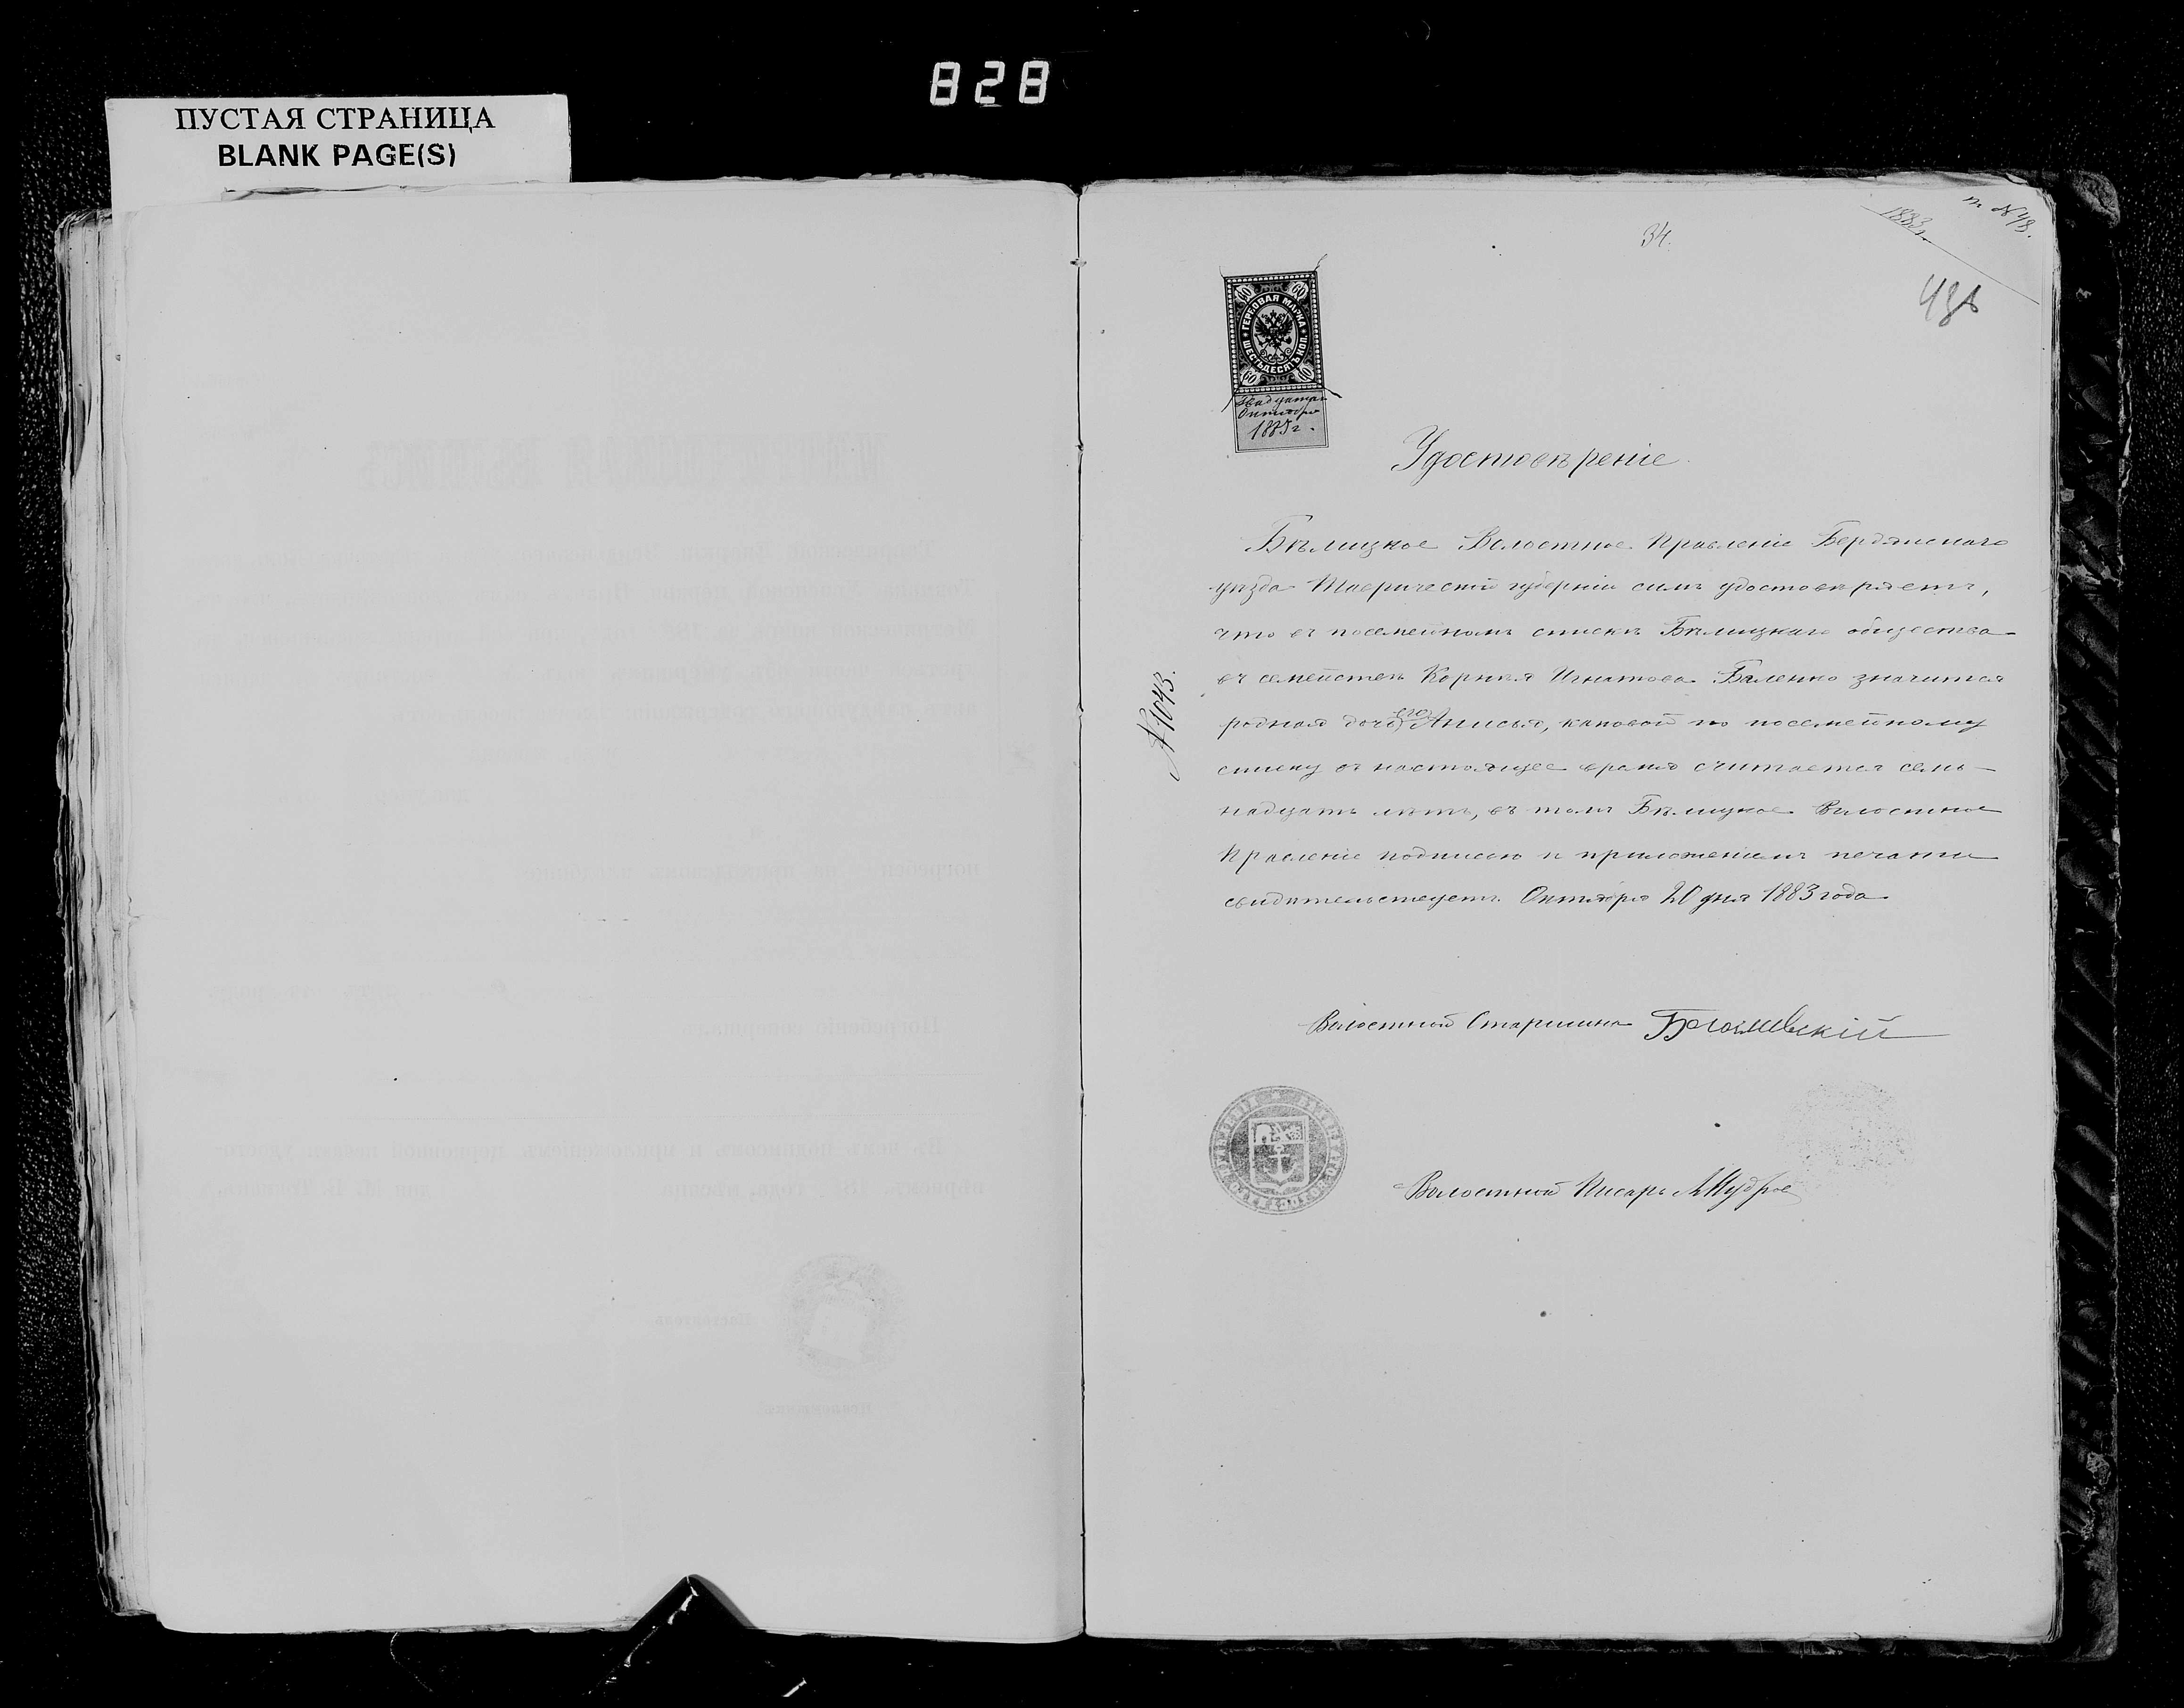 828
ПУСТАЯ СТРАНИЦА
BLANK PAGE(S)
1883 г.
№ 48.
34.
60 60
ГЕРБОВАЯ МАРКА
ШЕСТЬДЕСЯТЪ КОП.
60 60
Двадцатаго
Октября
1883 г.
Удостовѣреніе
Бѣлицкое Волостное Правленіе Бердянскаго
уѣзда Таврической губерніи симъ удостовѣряетъ,
что въ посемейномъ спискѣ Бѣлицкаго общества
въ семействѣ Корнѣя Игнатова Баленко значится
родная дочь его Анисья, каковой по посемейному
списку въ настоящее время считается семь-
надцать лѣтъ, въ томъ Бѣлицкое Волостное
Правленіе подписью и приложеніемъ печати
свидѣтельствуетъ. Октября 20 дня 1883 года
№ 1043.
Волостной Старшина
Волостной Писарь М Мудров